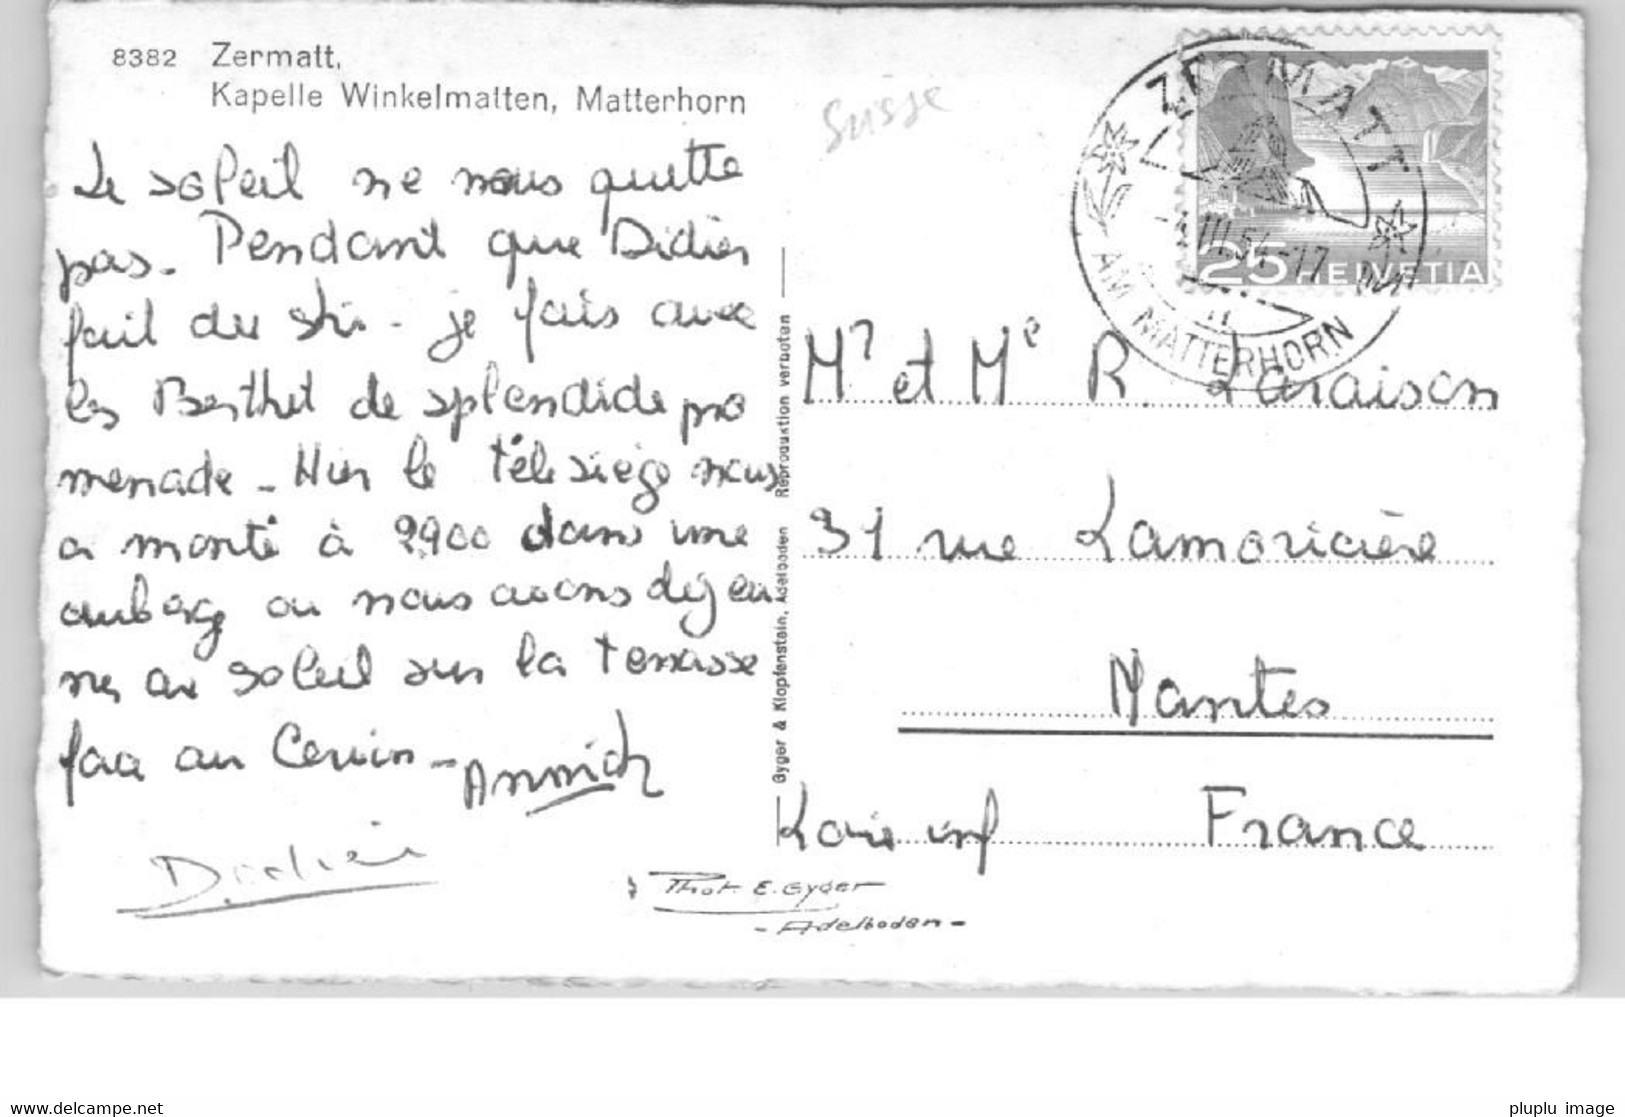 8382 Zermatt,
Kapelle Winkelmatten, Matterhorn
Suisse
Le soleil ne nous quitte
pas. Pendant que Didier
fait du ski - je fais avec
les Berthet de splendide pro
menade - Hier le télésiège nous
a monté à 2900 dans une
auberg ou nous avons déjeu
ner au soleil sur la terrasse
face au Cervin - Annick
Didier
ZERMATT
AM MATTERHORN
III.54-17
25 HELVETIA
Mr et Me R. Laraison
31 rue Lamoricière
Nantes
Loire inf France
Gyger & Klopfenstein, Adelboden Reproduktion verboten
Phot. E. Gyger
- Adelboden -
www.delcampe.net
pluplu image